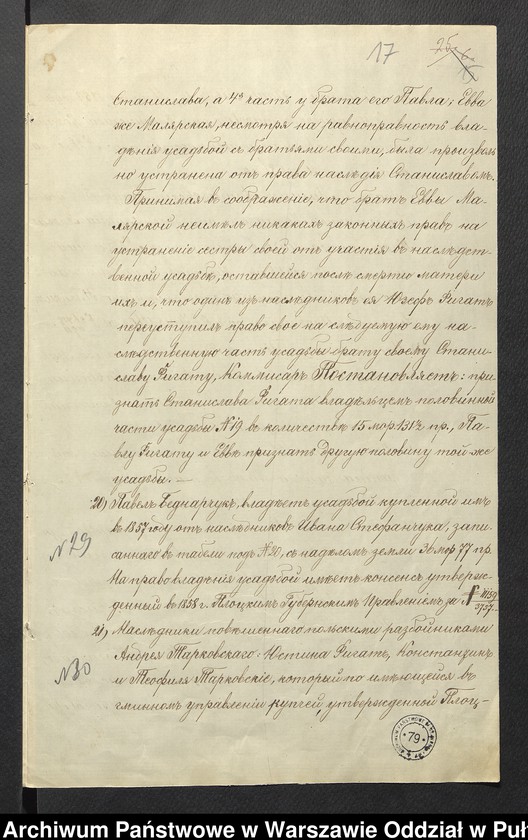 17
Станислава, а 4ª часть у брата его Павла; Евва
же Малярская, несмотря на равноправность вла-
дѣнія усадьбой съ братьями своими, была произволь
но устранена отъ права наслѣдія Станиславомъ.
Принимая въ соображеніе, что братъ Еввы Ма-
лярской неимѣлъ никакихъ законныхъ правъ на
устраненіе сестры своей отъ участія въ наслѣдст-
венной усадьбѣ, оставшейся послѣ смерти матери
ихъ и, что одинъ изъ наслѣдниковъ ея Юзефъ Ригатъ
переуступилъ право свое на слѣдуемую ему на-
слѣдственную часть усадьбы брату своему Стани-
славу Ригату, Коммисаръ Постановляетъ: при-
знать Станислава Ригата владѣльцемъ половинной
части усадьбы №19 въ количествѣ 15 мор 131½ пр., Па-
влу Ригату и Еввѣ признать другую половину той же
усадьбы. —
20) Павелъ Беднарчукъ, владѣетъ усадьбой купленной имъ
№29
въ 1857 году отъ наслѣдниковъ Ивана Стефанчука, запи-
саннаго въ табели подъ №20, съ надѣломъ земли 36 мор 77 пр.
На право владѣнія усадьбой имѣетъ консенсъ утверж-
денный въ 1858 г. Плоцкимъ Губернскимъ Правленіемъ за
21) Наслѣдники повѣшеннаго польскими разбойниками
№30
Андрея Тарковскаго: Юстина Ригатъ, Констанцинъ
и Теофиля Тарковскіе, который по имѣющейся въ
гминномъ управленіи купчей, утвержденной Плоц-
79
Archiwum Państwowe w Warszawie Oddział w Puł